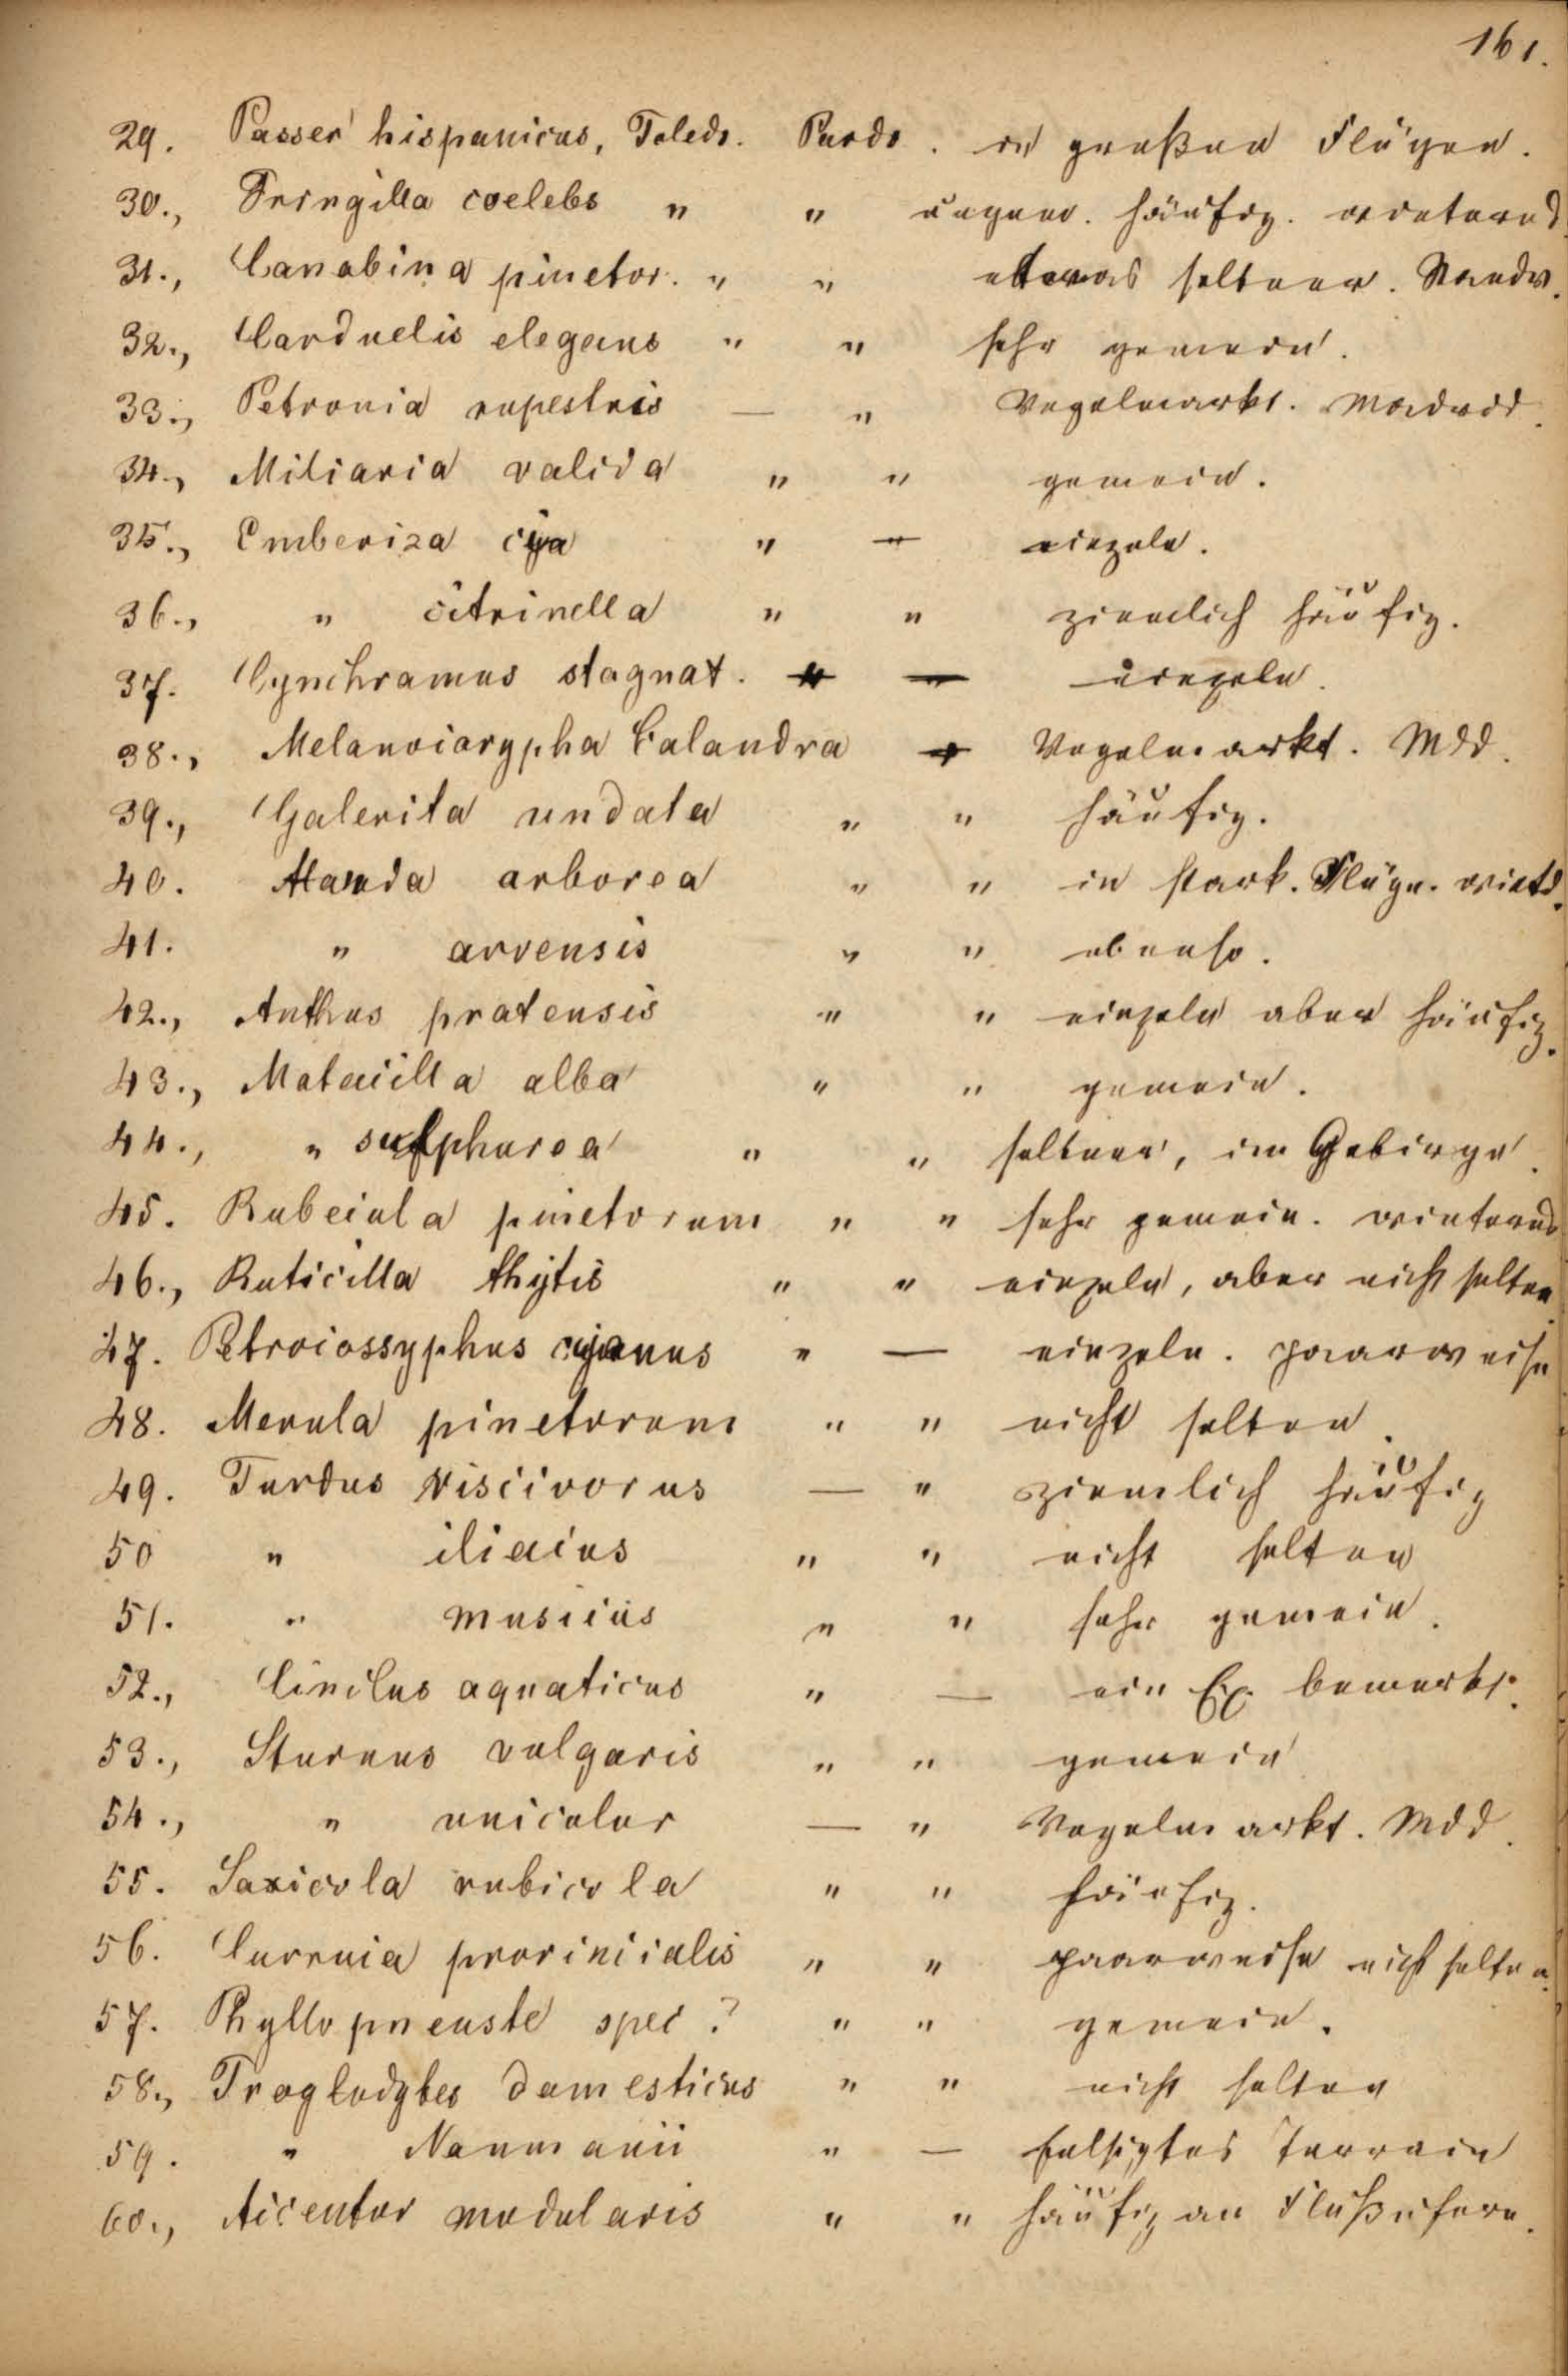 161.
29. Passer hispanicus, Toledo. Pardo. in großen Flügen.
30., Fringilla coelebs " " ungem. häufig. winternd
31., Canabina pinetor. " " etwas seltner. Standv.
32., Carduelis elegans " " sehr gemein.
33., Petronia rupestris — " Vogelmarkt. Madrid.
34., Miliaria valida " " gemein.
35., Emberiza cia " — einzeln.
36., " citrinella " " ziemlich häufig.
37. Cynchramus stagnat. — einzeln.
38., Melanocorypha Calandra Vogelmarkt. Mdd.
39., Galerita undata " " häufig.
40. Alauda arborea " " in stark. Flügn. wintd.
41. " arvensis " " ebenso.
42., Anthus pratensis " " einzeln aber häufig.
43., Motacilla alba " " gemein.
44., " sulphurea " " seltner, im Gebirge.
45. Rubecula pinetorum " " sehr gemein. winternd
46., Ruticilla thytis " " einzeln, aber nicht selten.
47. Petrocossyphus cyanus " — einzeln. paarweise
48. Merula pinetorum " " nicht selten.
49. Turdus viscivorus — " ziemlich häufig
50 " iliacus " " nicht selten
51. " musicus " " sehr gemein.
52., Cinclus aquaticus " — ein Ex. bemerkt.
53., Sturnus vulgaris " " gemein
54., " unicolor — " Vogelmarkt. Mdd.
55. Saxicola rubicola " " häufig.
56. Curruca provincialis " " paarweise nicht selten.
57. Phyllopneuste spec? " " gemein.
58., Troglodytes domesticus " " nicht selten
59. " Naumanii " — felsigtes Terrain
60., Accentor modularis " " häufig an Flußufern.